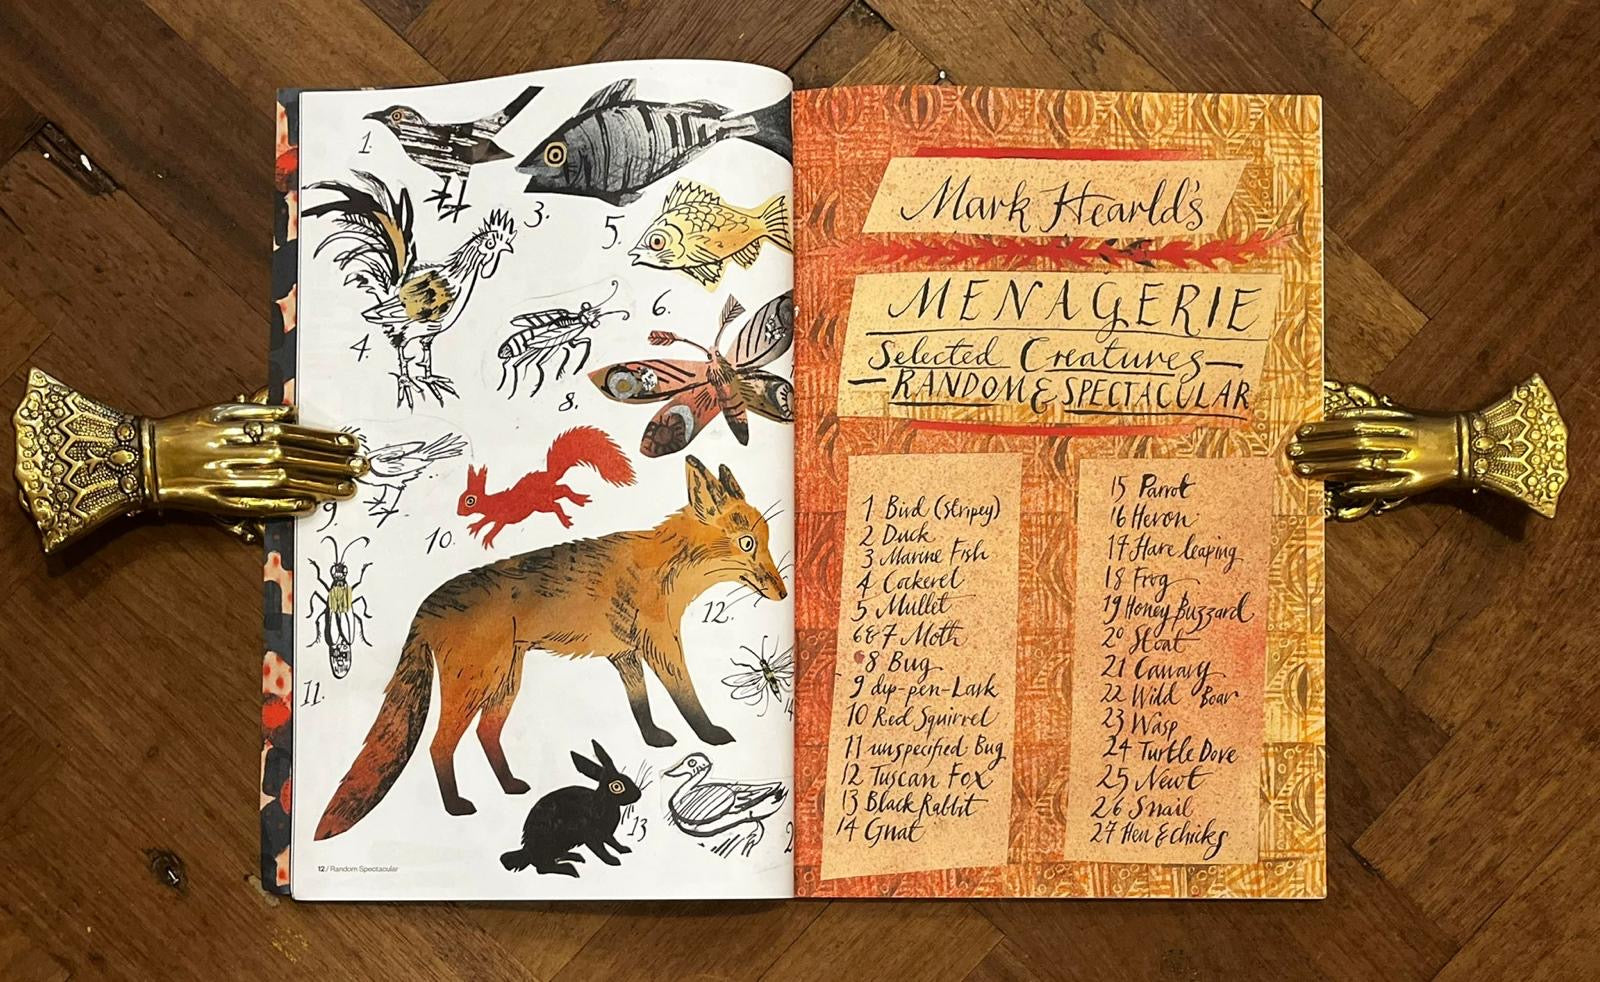 1.
3.
5.
4.
6.
8.
9
10.
12.
11.
14
13
2
12 / Random Spectacular
Mark Hearld's
MENAGERIE
Selected Creatures—
—RANDOM & SPECTACULAR
1 Bird (Stripey)
2 Duck
3 Marine Fish
4 Cockerel
5 Mullet
6&7 Moth
8 Bug
9 dip-pen-Lark
10 Red Squirrel
11 unspecified Bug
12 Tuscan Fox
13 Black Rabbit
14 Gnat
15 Parrot
16 Heron
17 Hare leaping
18 Frog
19 Honey Buzzard
20 Stoat
21 Canary
22 Wild Boar
23 Wasp
24 Turtle Dove
25 Newt
26 Snail
27 Hen & chicks